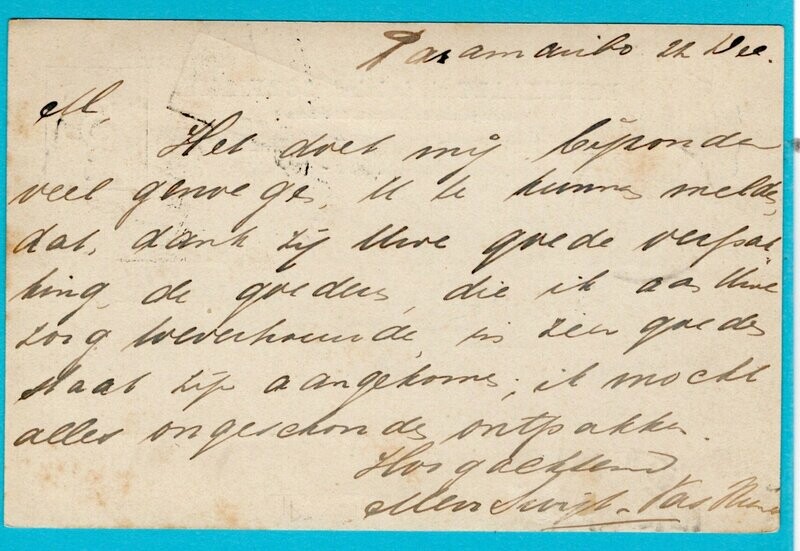 Paramaribo 22 Dec.
M,
Het doet mij bijzonder
veel genoegen, U te kunnen melden,
dat, dank zij Uwe goede verpak
king, de goederen, die ik aan Uwe
zorg toevertrouwde, in zeer goeden
staat zijn aangekomen; ik mocht
alles ongeschonden ontpakken.
Hoogachtend
Mevr